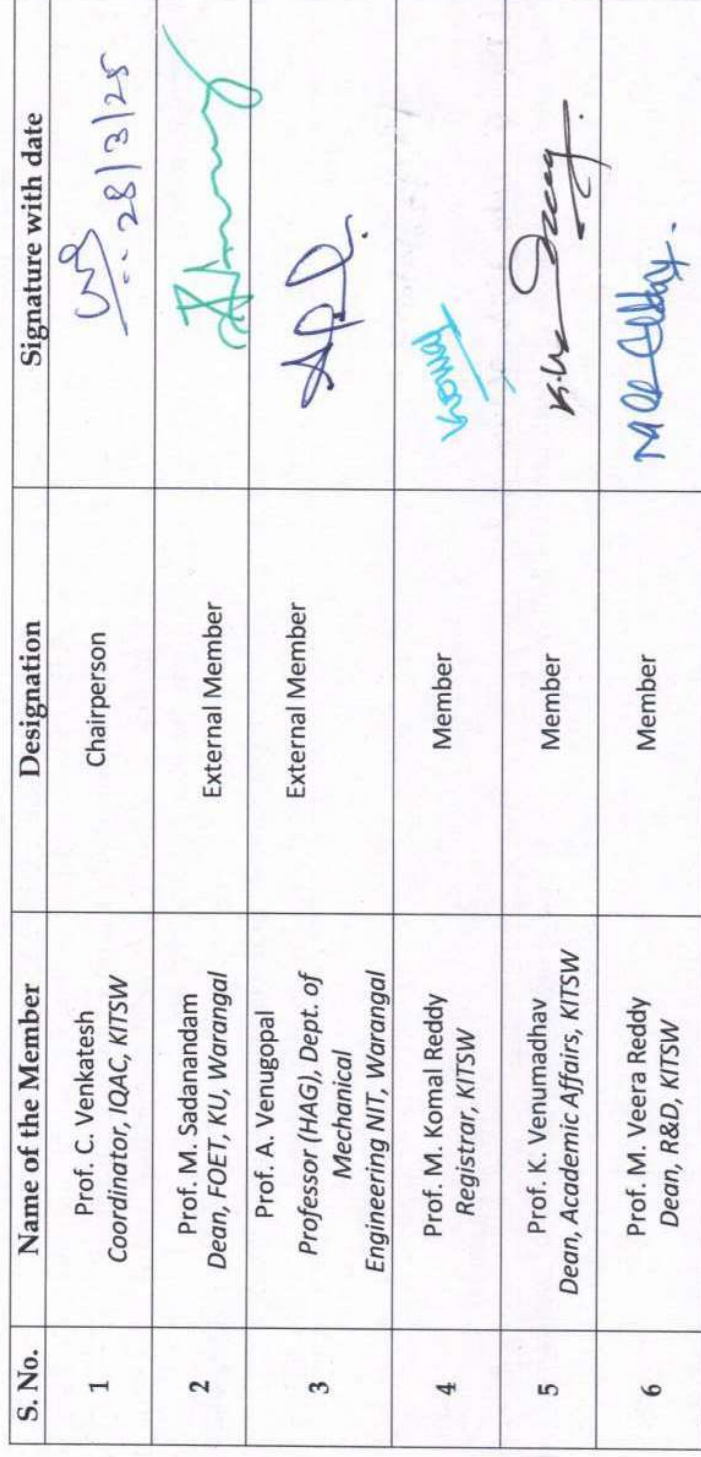 S. No.
Name of the Member
Designation
Signature with date
1
Prof. C. Venkatesh
Coordinator, IQAC, KITSW
Chairperson
28/3/25
2
Prof. M. Sadanandam
Dean, FOET, KU, Warangal
External Member
3
Prof. A. Venugopal
Professor (HAG), Dept. of
Mechanical
Engineering NIT, Warangal
External Member
4
Prof. M. Komal Reddy
Registrar, KITSW
Member
5
Prof. K. Venumadhav
Dean, Academic Affairs, KITSW
Member
6
Prof. M. Veera Reddy
Dean, R&D, KITSW
Member